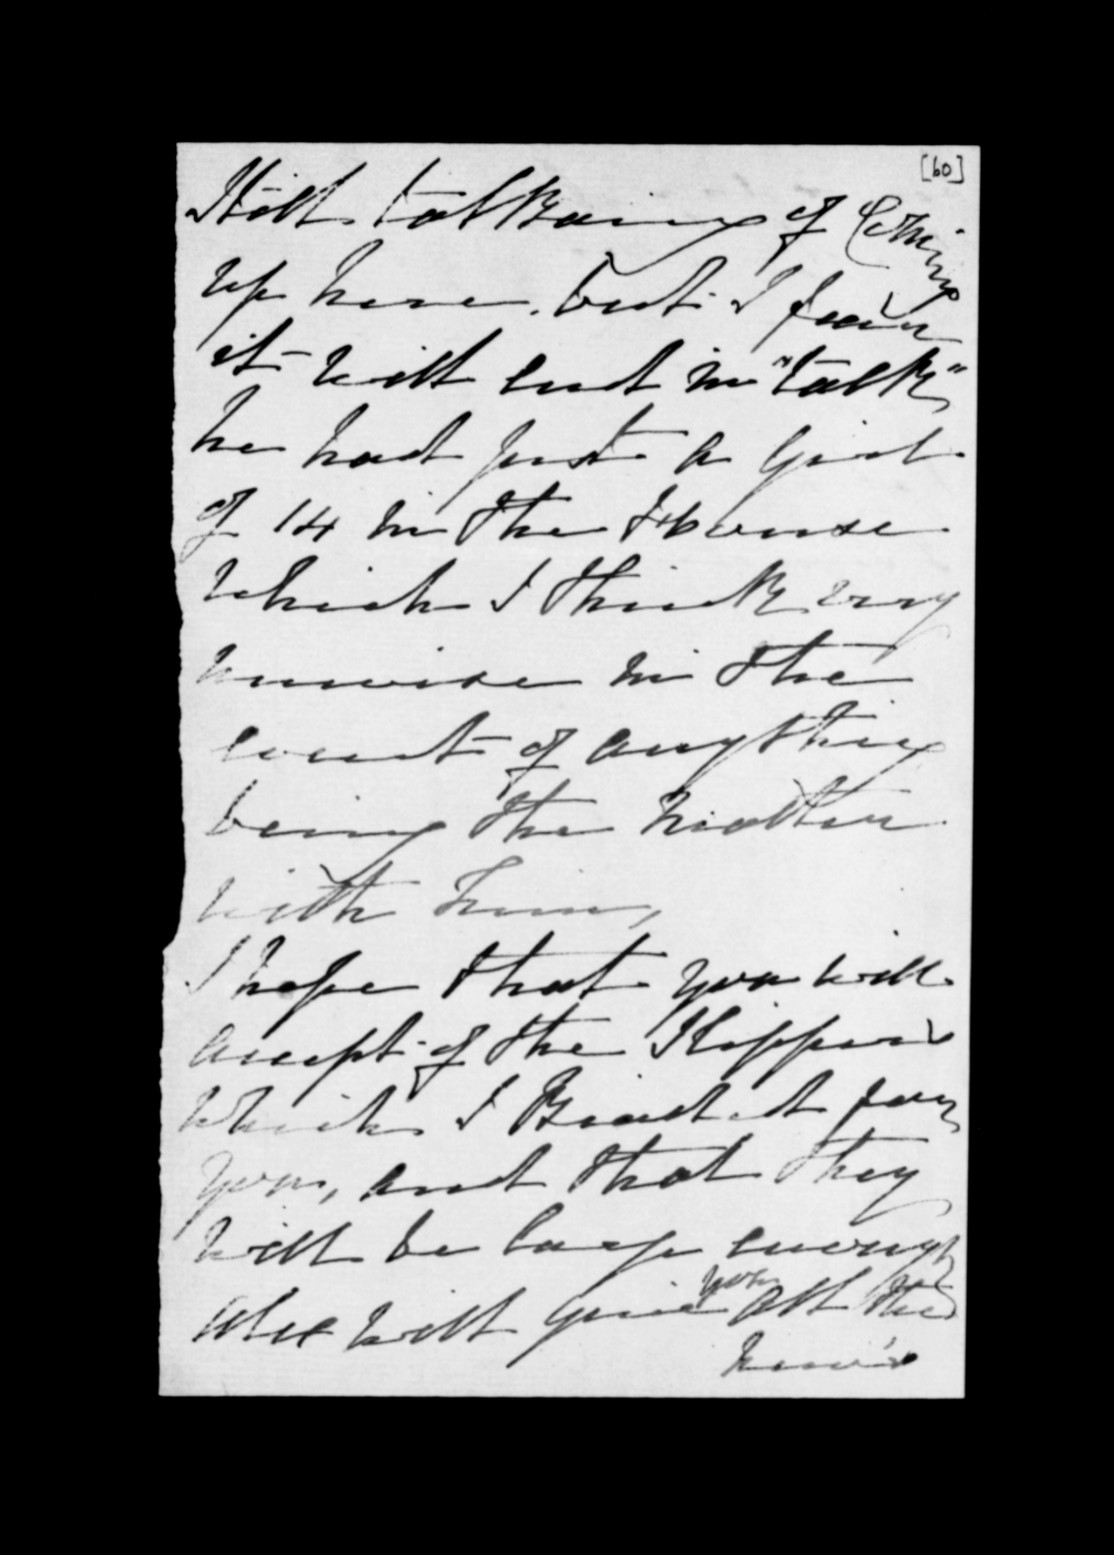 [60]
Still talking of Coming
up here, but I fear
it will end in "talk"
he had just a Girl
of 14 in the House
which I think very
unwise in the
event of anything
being the matter
with him,
I hope that you will
accept of the Slippers
which I Knitted for
you, and that they
will be large enough
Alex will give you all the
news